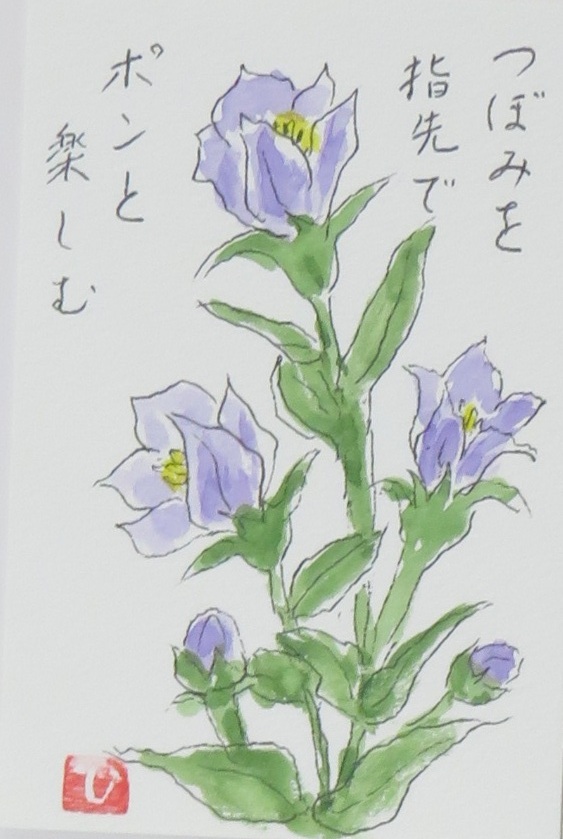 つぼみを
指先で
ポンと
楽しむ
ひ